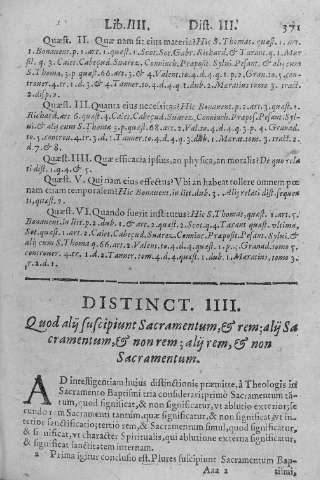 Lib. IIII. Dist. III. 371
Quæst. II. Quæ nam sit eius materia? Hic S. Thomas. quæst. 1. art.
1. Bonauent. p. 1. art. 1. quæst. 1. Scot. Sot. Gabr. Richard, & Tarant. q. 1. Mar
sil. q. 3. Caiet. Cabeç. ud. Suarez. Conninch. Præposit. Sylui. Pesant. & alij cum
S. Thoma. 3. p. quæst. 66. art. 3. & 4. Valent. to. 4. d. 4. q. 1. p. 2. Gran. to. 4. con-
trouer. 4. tr. 1. d. 3. & 4. Tanner. to. 4. d. 4. q. 1. dub. 2. Maratius tomo 3. tract.
2. disp. 2.
Quæst. III. Quanta eius necessitas? Hic Bonauent. p. 2. art. 1. quæst. 1.
Richard. art. 6. quæst. 4. Caiet. Cabeç. ud. Suarez. Conninch. Præpos. Pesant. Syl-
ui. & alij cum S. Thoma 3. p. quæst. 68. art. 2. Val. to. 4. d. 4. q. 3. p. 4. Granad.
to. 5. controu. 4. tr. 3. d. 1. Tanner to. 4. d. 4. q. 3. dub. 1. Marat. tom. 3. tract. 2.
d. 7. & 8.
Quæst. IIII. Quæ efficacia ipsius, an physica, an moralis? De quo rela
ti dist. 1. q. 4. & 5.
Quæst. V. Qui nam eius effectus? Vbi an habeat tollere omnem pœ
nam etiam temporalem? Hic Bonauent. in litt. dub. 3. Alij relati dist. sequen
ti, quæst. 2.
Quæst. VI. Quando fuerit institutus? Hic S. Thomas, quæst. 1. art. 5.
Bonauent. in litt. p. 2. dub. 1. & art. 2. quæst. 2. Scot. q. 4. Tarant quæst. vltima,
Sot. quæst. 1. art. 2. Caiet. Cabeç. ud. Suarez. Conninc. Præposit. Pesant. Sylui. &
alij cum S. Thoma q. 66. art. 2. Valent. to. 4. d. 4. quæst. 1. p. 1. Granad. tomo 5.
controuer. 4. tr. 1. d. 2. Tanner, tom. 4. d. 4. quæst. 1. dub. 1. Maratius, tom. 3.
tr. 2. d. 1.
DISTINCT. IIII.
Quod alij suscipiunt Sacramentum, & rem; alij Sa
cramentum, & non rem; alij rem, & non
Sacramentum.
AD intelligentiam huius distinctionis præmitte, à Theologis in
Sacramento Baptismi tria considerari: primò Sacramentum tā-
tum, quod significat, & non significatur, vt ablutio exterior; se
cundò rem Sacramenti tantùm, quæ significatur, & non significat, vt in-
terior sanctificatio; tertiò rem, & Sacramentum simul, quod significatur,
& significat, vt character Spiritualis, qui ablutione externa significatur,
& significat sanctitatem internam.
2 Prima igitur conclusio est. Plures suscipiunt Sacramentum Bap-
Aaa 2 tismi,